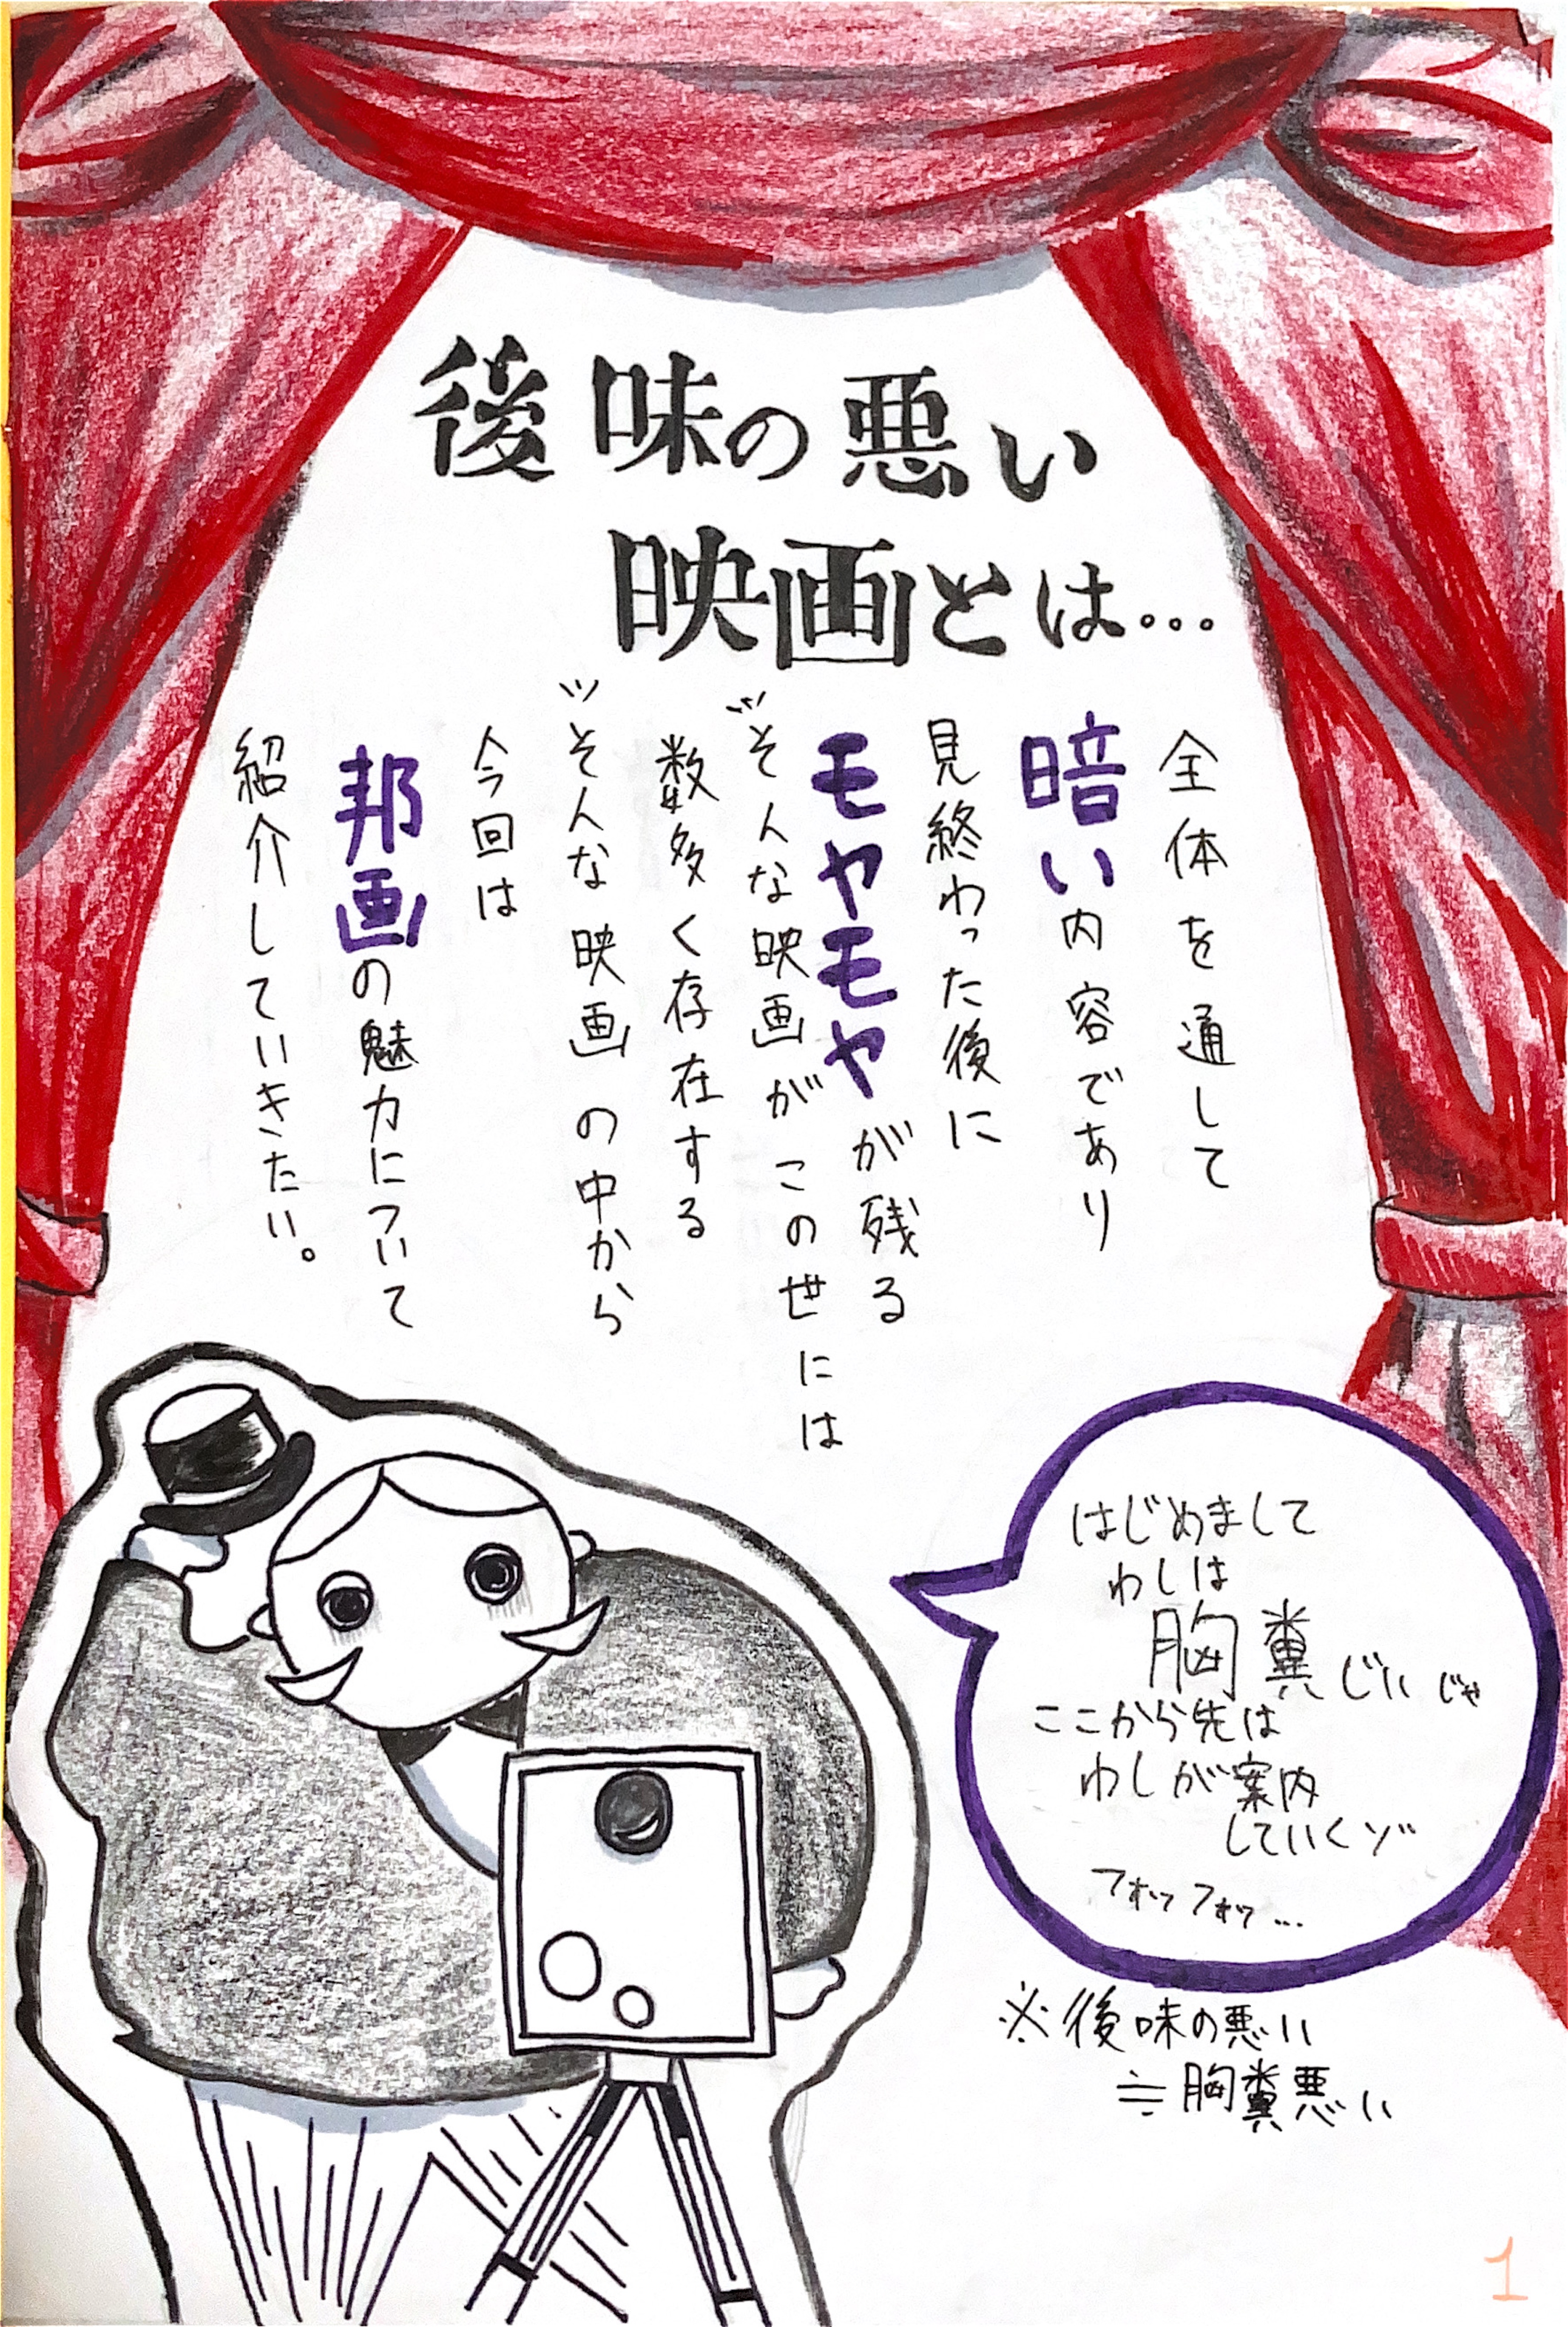 後味の悪い
映画とは…
全体を通して
暗い内容であり
見終わった後に
モヤモヤが残る
そんな映画がこの世には
数多く存在する
そんな映画の中から
今回は
邦画の魅力について
紹介していきたい。
はじめまして
わしは
胸糞じいじゃ
ここから先は
わしが案内
していくゾ
フォッフォッ…
※後味の悪い
≒胸糞悪い
1